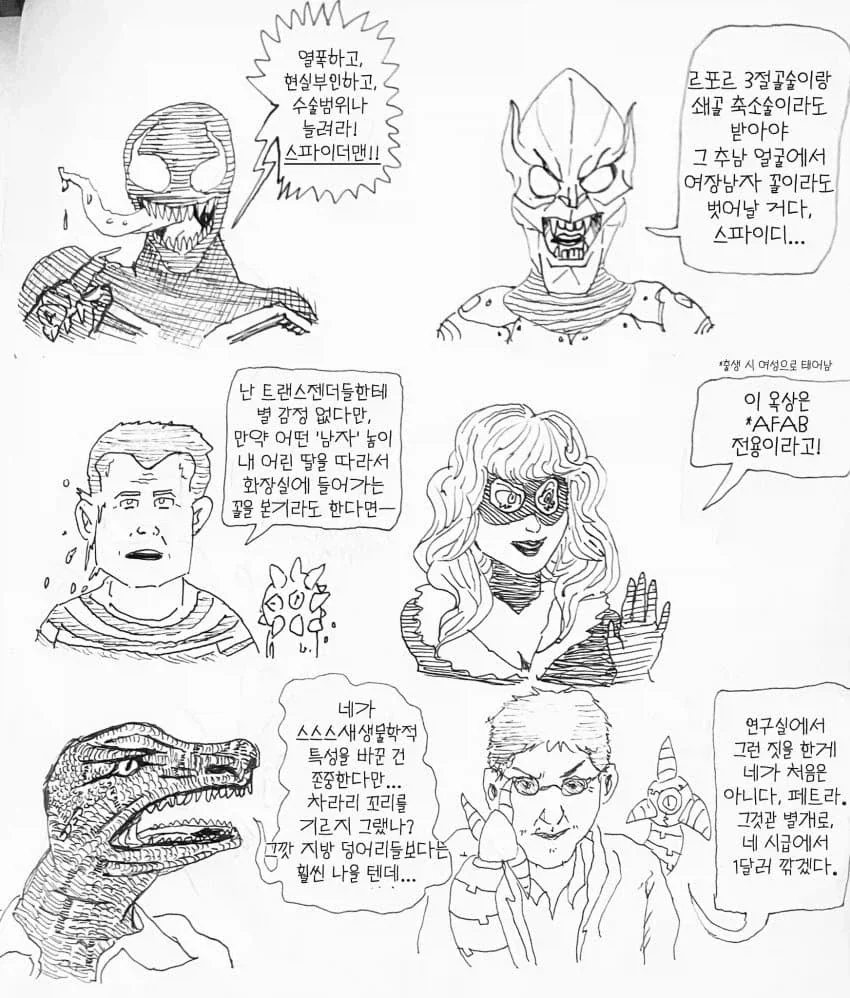 열폭하고,
현실부인하고,
수술범위나
늘려라!
스파이더맨!!
르포르 3절골술이랑
쇄골 축소술이라도
받아야
그 추남 얼굴에서
여장남자 꼴이라도
벗어날 거다,
스파이디...
난 트랜스젠더들한테
별 감정 없다만,
만약 어떤 '남자' 놈이
내 어린 딸을 따라서
화장실에 들어가는
꼴을 본기라도 한다면—
*출생 시 여성으로 태어남
이 옥상은
*AFAB
전용이라고!
네가
스스스새생물학적
특성을 바꾼 건
존중한다만...
차라리 꼬리를
기르지 그랬나?
그깟 지방 덩어리들보다는
훨씬 나을 텐데...
연구실에서
그런 짓을 한게
네가 처음은
아니다, 페트라.
그것관 별개로,
네 시급에서
1달러 깎겠다.